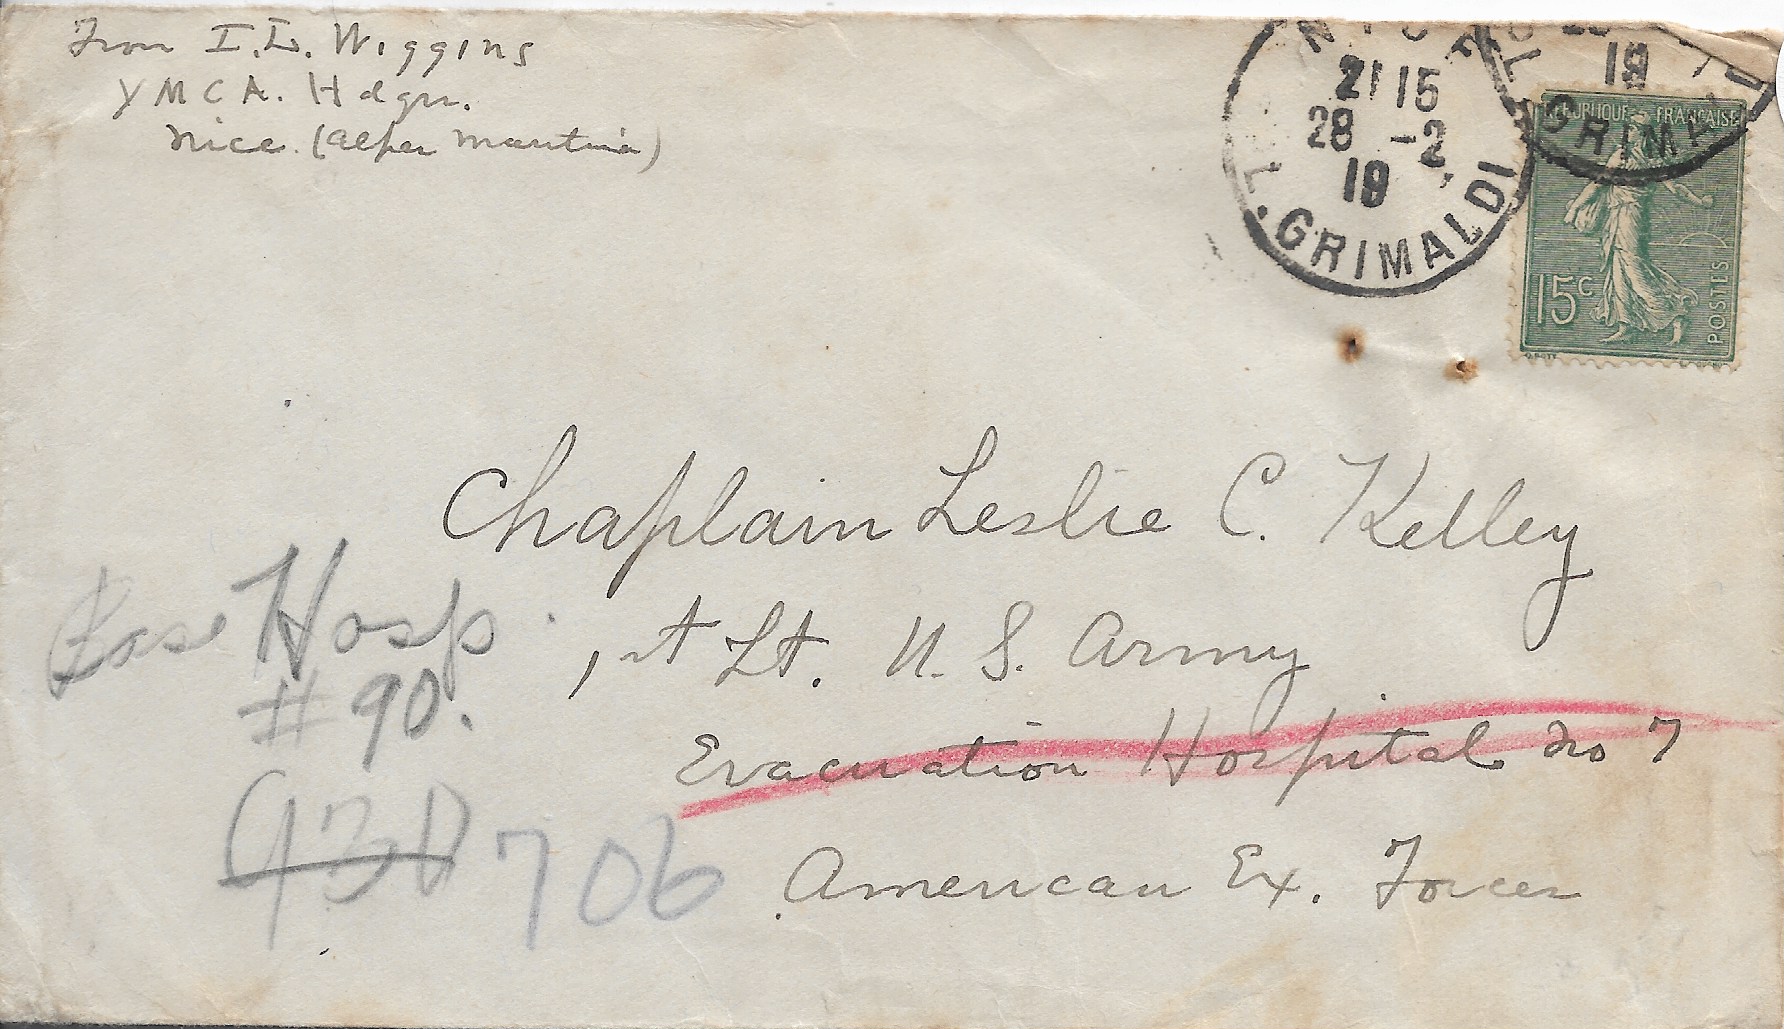 From I. L. Wiggins
YMCA. Hdqrs.
Nice. (Alpes Maritime)
NICE
21 15
28 -2
19
L. GRIMALDI
19
GRIMALDI
REPUBLIQUE FRANÇAISE
15c
POSTES
Chaplain Leslie C. Kelley
1st Lt. U. S. Army
Evacuation Hospital No 7
American Ex. Forces
Base Hosp.
#90.
706